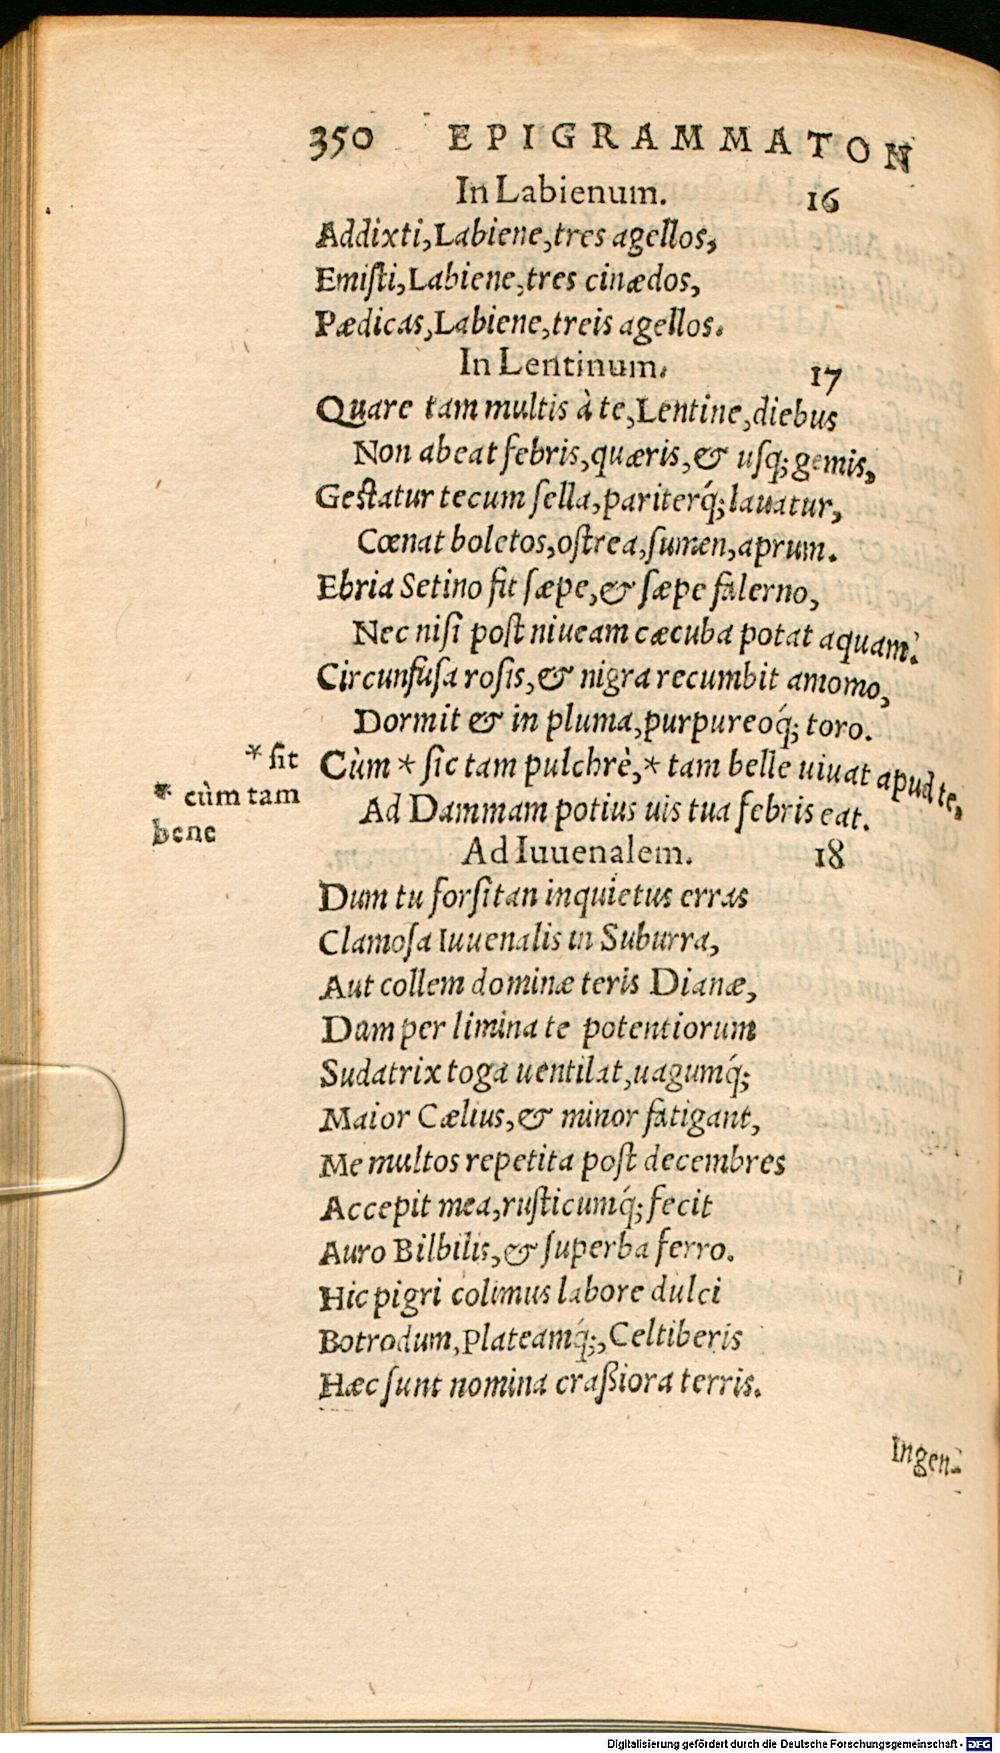 350 EPIGRAMMATON
In Labienum. 16
Addixti, Labiene, tres agellos,
Emiſti, Labiene, tres cinædos,
Pædicas, Labiene, treis agellos.
In Lentinum. 17
Quare tam multis à te, Lentine, diebus
Non abeat febris, quæris, & uſq; gemis,
Geſtatur tecum ſella, pariterq́; lauatur,
Cœnat boletos, oſtrea, ſumen, aprum.
Ebria Setino fit ſæpe, & ſæpe falerno,
Nec niſi poſt niueam cæcuba potat aquam.
Circunfuſa roſis, & nigra recumbit amomo,
Dormit & in pluma, purpureoq́; toro.
* ſit
Cùm * ſic tam pulchrè, * tam belle uiuat apud te,
* cùm tam
Ad Dammam potius uis tua febris eat.
bene
Ad Iuuenalem. 18
Dum tu forſitan inquietus erras
Clamoſa Iuuenalis in Suburra,
Aut collem dominæ teris Dianæ,
Dam per limina te potentiorum
Sudatrix toga uentilat, uagumq́;
Maior Cælius, & minor fatigant,
Me multos repetita poſt decembres
Accepit mea, ruſticumq́; fecit
Auro Bilbilis, & ſuperba ferro.
Hic pigri colimus labore dulci
Botrodum, Plateamq́;, Celtiberis
Hæc ſunt nomina craßiora terris.
Ingen-
Digitalisierung gefördert durch die Deutsche Forschungsgemeinschaft - DFG